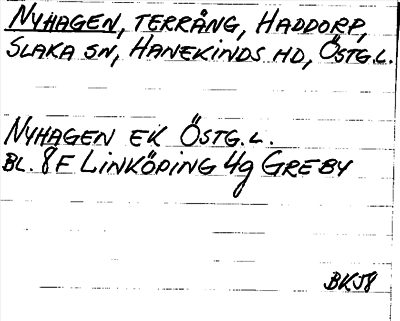 NYHAGEN, TERRÄNG, HADDORP,
SLAKA SN, HANEKINDS HD, ÖSTG.L.
NYHAGEN EK ÖSTG.L.
BL. 8F LINKÖPING 4g GREBY
BKJ8